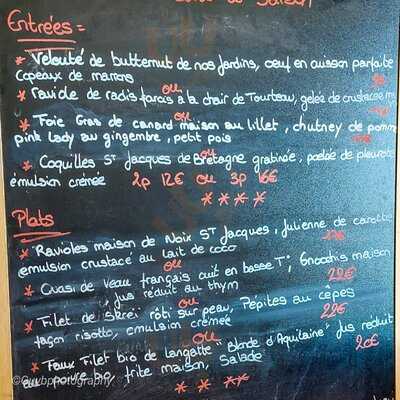 Entrées =
* Velouté de butternut de nos jardins, oeuf en cuisson parfaite
copeaux de marrons
ou
* Raviole de radis farcis à la chair de Tourteau, gelée de crustacé
ou
* Foie Gras de canard maison au lillet, chutney de pomme
pink Lady au gingembre, petit pois
ou
* Coquilles St Jacques de Bretagne gratinée, poelée de pleurote
émulsion crémée 2p 12€ ou 3p 16€
* * * *
Plats
* Ravioles maison de Noix St Jacques, Julienne de carotte
émulsion crustacé au lait de coco
ou
* Quasi de veau français cuit en basse T°, Gnocchis maison
jus réduit au thym 22€
ou
* Filet de Skrei rôti sur peau, Pépites au cèpes
façon risotto, emulsion crémée 22€
ou
* Faux Filet bio de langatte "Blonde d'Aquitaine" Jus réduit
au poivre bio, frite maison, Salade 20€
* * * *